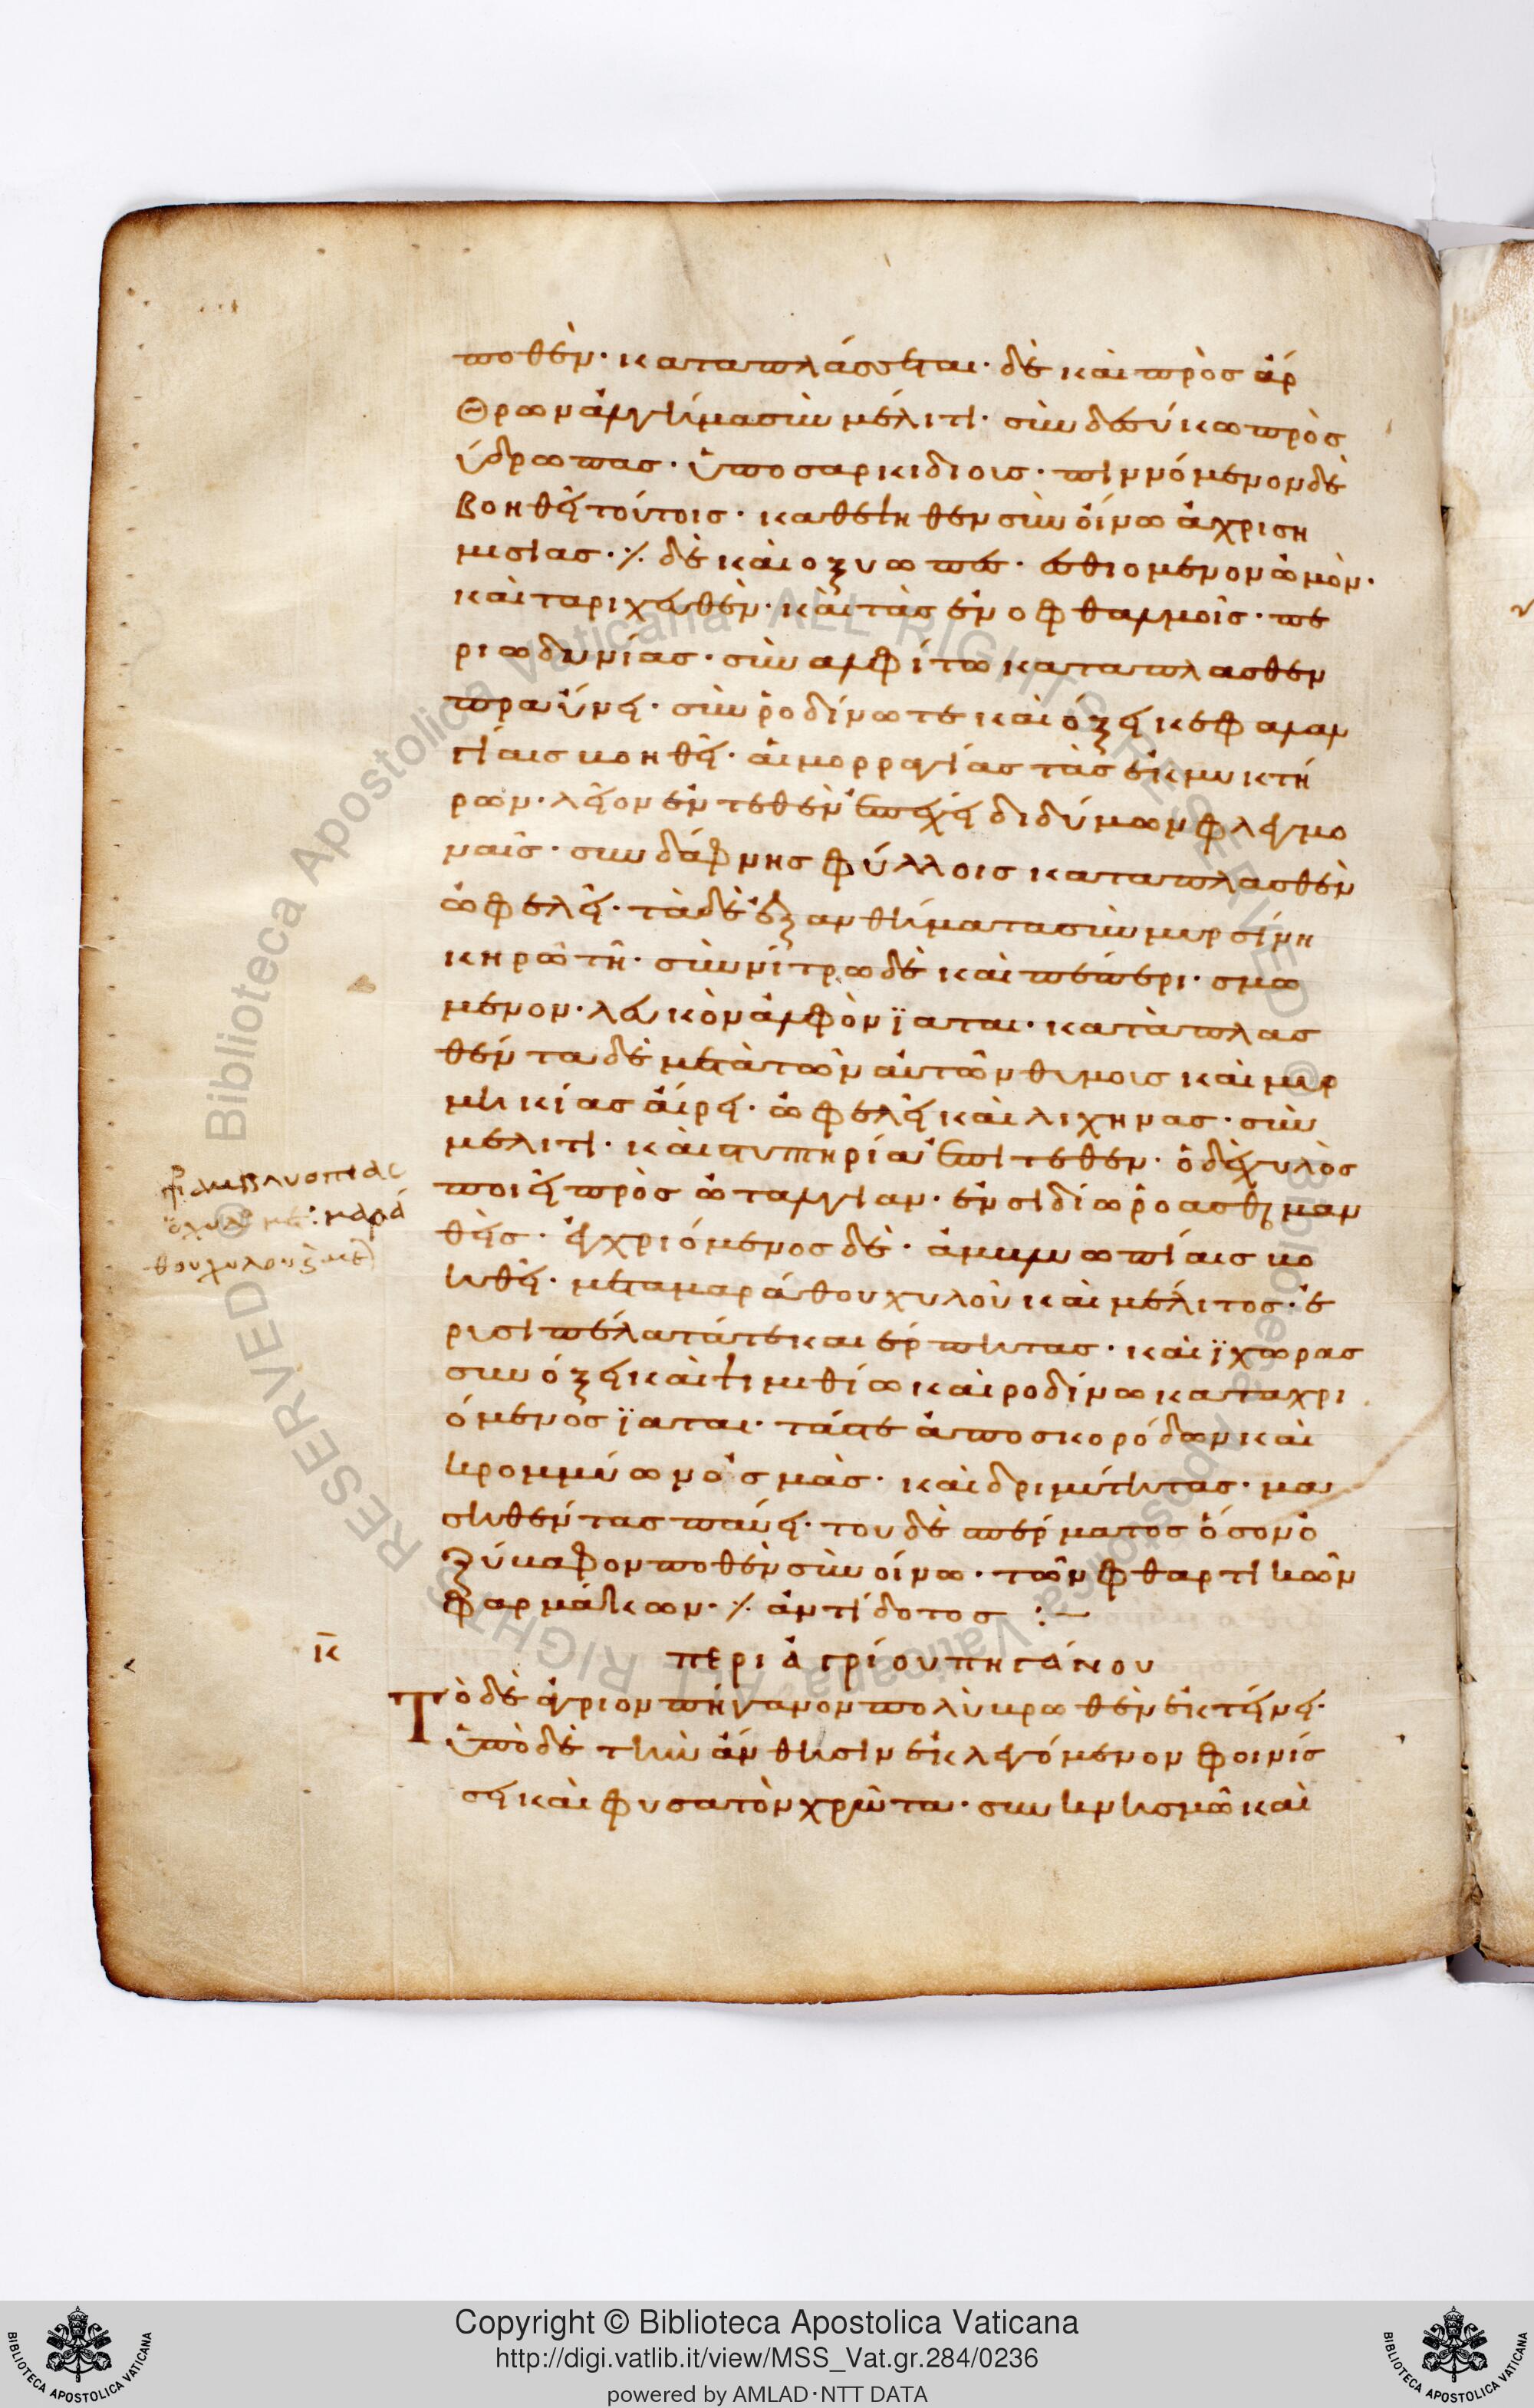 ποθέν· καταπλάσσεται· δὲ καὶ πρὸς ἄρ
θρων ἀλγήμασιν μέλιτι· σὺν δὲ σύκω πρὸς
ὕδρωπας· ὑποσαρκιδίοις· πιννόμενον δὲ
βοηθεῖ τούτοις· καθεψηθὲν σὺν οἴνω ἄχρις η
μισίας· ·/· δὲ καὶ οξυωπὲς· ἐσθιόμενον ὠμὸν·
καὶ ταριχευθέν· καὶ τὰς ἐν οφθαλμοῖς· πε
ριωδυνίας· σὺν αλφίτω καταπλασθέν
πραΰνει· σὺν ῥοδίνω τε καὶ ὄξει κεφαλαλ
γίαις βοηθεῖ· αἱμορραγίας τὰς ἐκ μυκτή
ρων· λεῖον ἐντεθὲν ἐπέχει διδύμων φλεγμο
ναῖς· συν δάφνης φύλλοις καταπλασθὲν
ὠφελεῖ· τὰ δὲ ἐξανθήματα σὺν μυρσίνη
κηρωτῆ· σὺν νίτρω δὲ καὶ πέπερι· σμω
μενον· λευκὸν ἀλφὸν ϊαται· κατὰπλασ
θέντα δὲ μετὰ τῶν αὐτῶν θυμοις καὶ μυρ
μηκίας αἴρει· ὠφελεῖ καὶ λιχηνας· σὺν
μέλιτι· καὶ στυπτηρία ἐπιτεθέν· ὁ δὲ χυλὸς
ποιεῖ πρὸς ὠταλγίαν· ἐν σιδίω ῥοας θερμαν
θεὶς· ἐγχριόμενος δὲ· ἀμβλυωπίαις βο
ηθεῖ· μετα μαράθου χυλοῦ καὶ μέλιτος· ἐ
ρυσιπέλατά τε και ἕρπητας· καὶ ϊχωρας
συν ὄξει καὶ ψιμιθίω καὶ ροδίνω καταχρι
όμενος ϊαται· τάς τε ἀπο σκορόδων καὶ
κρομμύων ὀσμὰς· καὶ δριμύτητας· μα
σηθέντας παύει· του δὲ σπέρματος ὅσον ὀ
ξύβαφον ποθὲν σὺν οίνω· τῶν φθαρτικῶν
φαρμάκων· ·/· ἀντίδοτος :—
κ̅
περι ἀγρίου πηγάνου
Τὸ δὲ ἄγριον πήγανον πολὺ βρωθὲν ἐκτείνει·
ὑπὸ δὲ τὴν ἄνθησιν ἐκλεγόμενον φοινίσ
σει καὶ φυσα τὸν χρῶτα· συν κνησμῶ καὶ